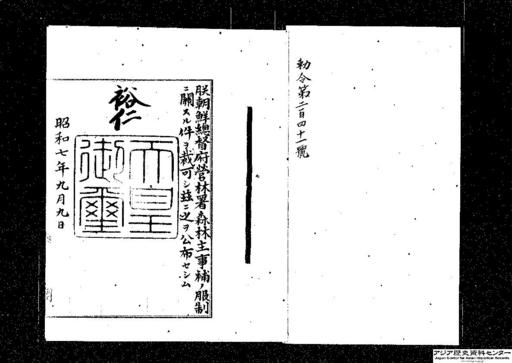 勅令第二百四十一號
朕朝鮮總督府營林署森林主事補ノ服制
ニ關スル件ヲ裁可シ玆ニ之ヲ公布セシム
裕仁
天皇御璽
昭和七年九月九日
アジア歴史資料センター
Japan Center for Asian Historical Records